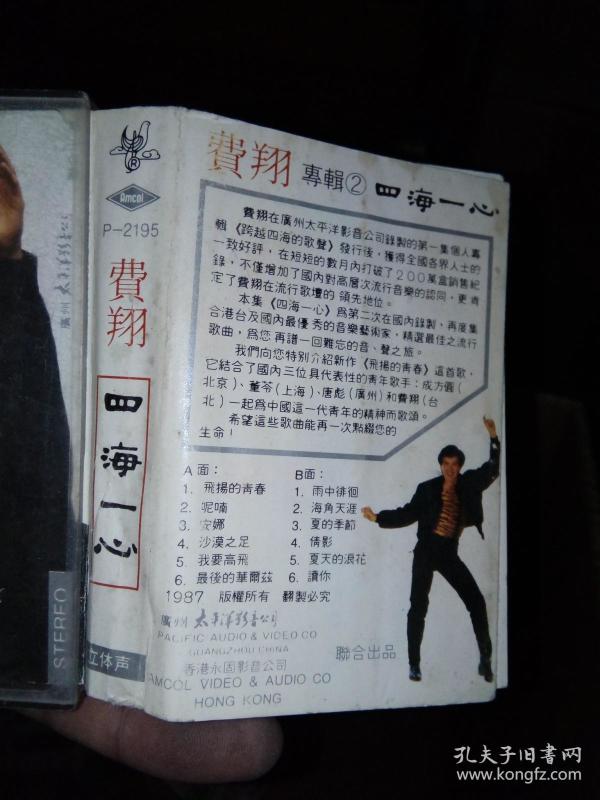 廣州太平洋影音公司
STEREO
R
Amcol
P-2195
費翔
四海一心
立体声
費翔 專輯② 四海一心
費翔在廣州太平洋影音公司錄製的第一集個人專
輯《跨越四海的歌聲》發行後，獲得全國各界人士的
一致好評，在短短的數月內打破了200萬盒銷售紀
錄，不僅增加了國內對高層次流行音樂的認同，更肯
定了費翔在流行歌壇的領先地位。
本集《四海一心》為第二次在國內錄製，再度集
合港台及國內最優秀的音樂藝術家，精選最佳之流行
歌曲，為您再譜一回難忘的音、聲之旅。
我們向您特別介紹新作《飛揚的青春》這首歌，
它結合了國內三位具代表性的青年歌手：成方圓（
北京）、董苓（上海）、唐彪（廣州）和費翔（台
北）一起為中國這一代青年的精神而歌頌。
希望這些歌曲能再一次點綴您的
生命！
A面：
1. 飛揚的青春
2. 呢喃
3. 安娜
4. 沙漠之足
5. 我要高飛
6. 最後的華爾茲
B面：
1. 雨中徘徊
2. 海角天涯
3. 夏的季節
4. 倩影
5. 夏天的浪花
6. 讀你
1987 版權所有 翻製必究
廣州太平洋影音公司
PACIFIC AUDIO & VIDEO CO
GUANGZHOU CHINA
香港永固影音公司
AMCOL VIDEO & AUDIO CO
HONG KONG
聯合出品
孔夫子旧書网
www.kongfz.com